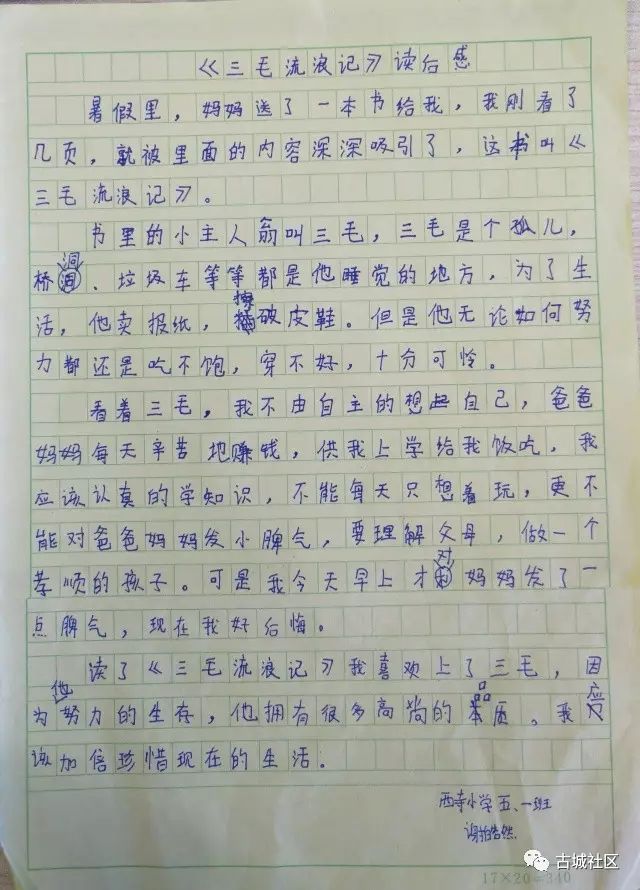 《三毛流浪记》读后感
暑假里，妈妈送了一本书给我，我刚看了
几页，就被里面的内容深深吸引了，这书叫《
三毛流浪记》。
书里的小主人翁叫三毛，三毛是个孤儿，
桥洞、垃圾车等等都是他睡觉的地方，为了生
活，他卖报纸，擦破皮鞋。但是他无论如何努
力都还是吃不饱，穿不好，十分可怜。
看着三毛，我不由自主的想起自己，爸爸
妈妈每天辛苦地赚钱，供我上学给我饭吃，我
应该认真的学知识，不能每天只想着玩，更不
能对爸爸妈妈发小脾气，要理解父母，做一个
孝顺的孩子。可是我今天早上才对妈妈发了一
点脾气，现在我好后悔。
读了《三毛流浪记》我喜欢上了三毛，因
为他努力的生存，他拥有很多高尚的品质。我应
该加倍珍惜现在的生活。
西寺小学五、一班
谢皓然
古城社区
17×20=340